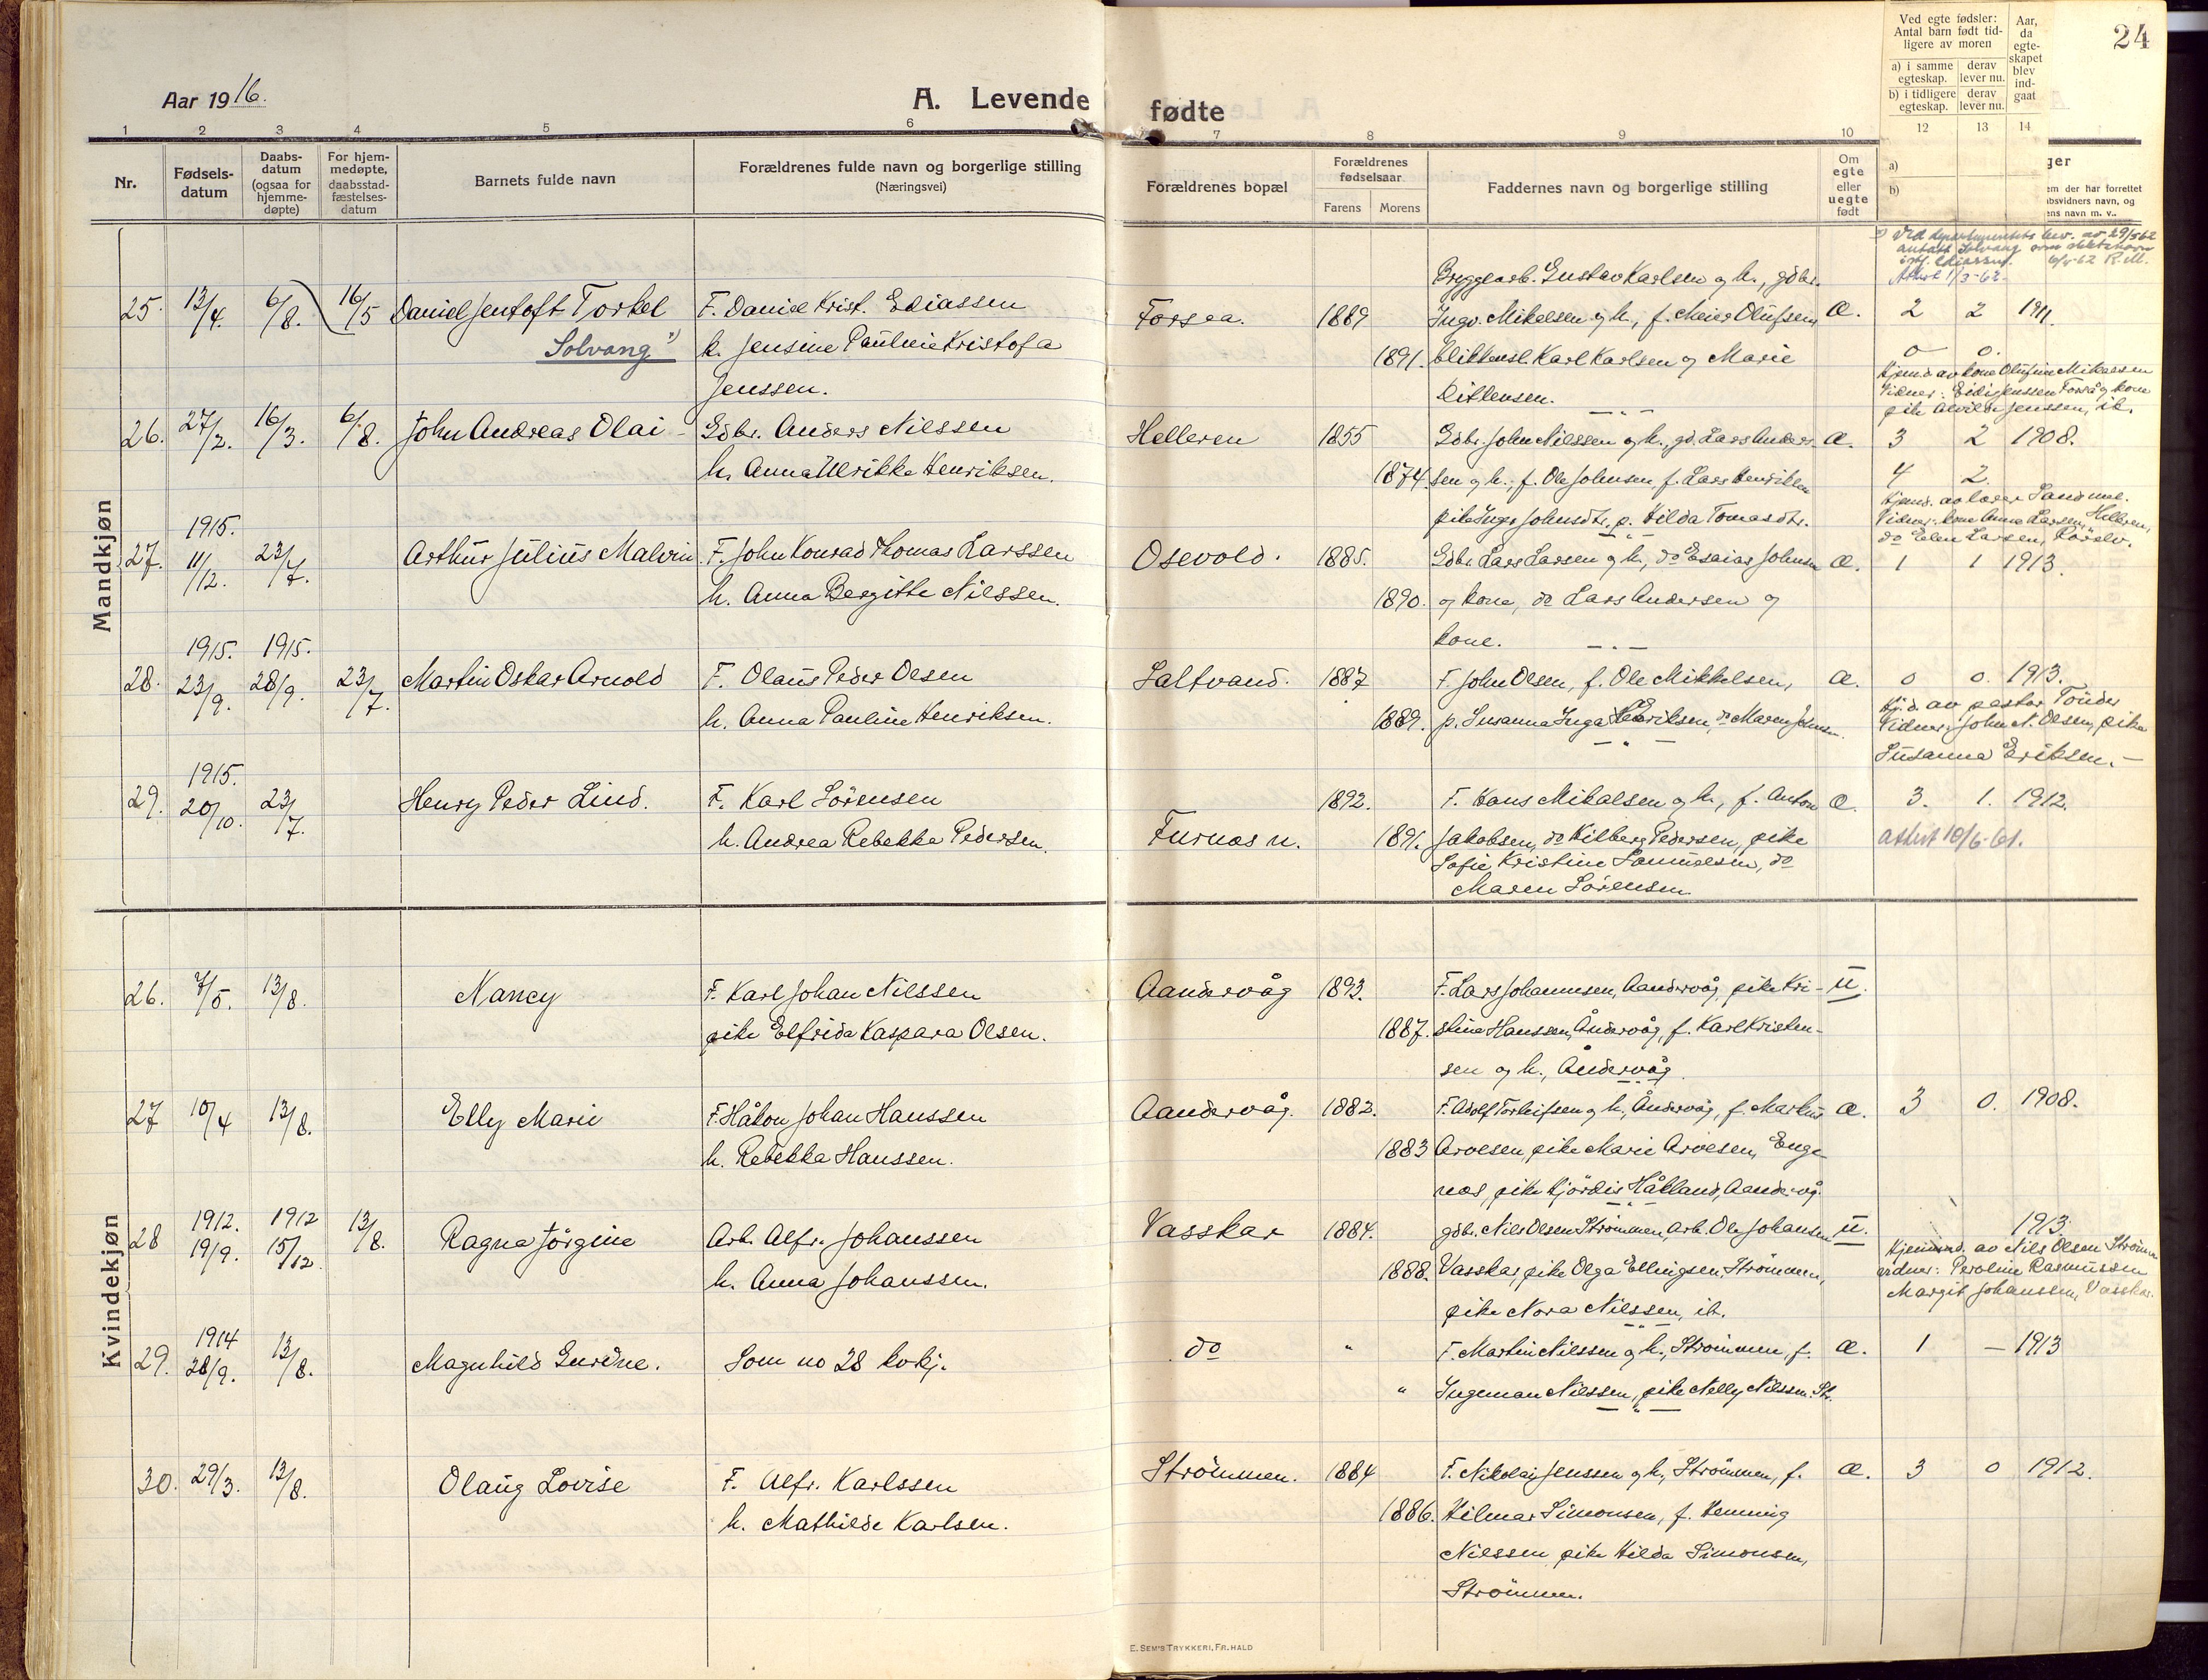 Aar 1916.
A. Levende fødte
24
Ved egte fødsler: Antal barn født tidligere av moren
Aar, da egteskapet blev indgaat
a) i samme egteskap. derav lever nu.
b) i tidligere egteskap. derav lever nu.
1 2 3 4 5 6 7 8 9 10 12 13 14
Nr.
Fødselsdatum
Daabsdatum (ogsaa for hjemmedøpte)
For hjemmedøpte, daabsstadfæstelsesdatum
Barnets fulde navn
Forældrenes fulde navn og borgerlige stilling
(Næringsvei)
Forældrenes bopæl
Forældrenes fødselsaar
Farens Morens
Faddernes navn og borgerlige stilling
Om egte eller uegte født
a)
b)
ger
em der har forrettet
absvidners navn, og
ens navn m. v..
Mandkjøn
Bryggearb. Gustav Karlsen og h., gdbr.
25. 13/4. 6/8. 16/5 Daniel Jentoft Torkel F. Daniel Krist. Eliassen Forsaa. 1889 Ingv. Mikelsen og h., f. Meier Olufsen, æ. 2 2 1911.
Solvang h. Jensine Paulinie Kristofa 1891. Karl Karlsen og Marie 0 0.
Jenssen. Dittensen.
Hjemd. av kone Olufine Mikalsen
Vidner: Jenssen Forså og kone
pike Alvilde Jenssen, ib.
26. 27/2. 16/3. 6/8. John Andreas Olai Gdbr. Anders Nilssen Helleren 1855 Gdbr. John Nilssen og h., gd. Lars Anders- æ. 3 2 1908.
h. Anna Ulrikke Henriksen. 1874. sen og h., f. Ole Johnsen, f. Lars Henriksen 4 2.
pike Inger Johnsdtr. p. Hilda Tomasdtr.
Hjemd. av lærer Sandmel.
Vidner: kone Anna Larsen, Helleren,
do Elen Larsen,
1915.
27. 11/12. 23/7. Arthur Julius Malvin F. John Konrad Thomas Larssen Osevold. 1885. Gdbr. Lars Larsen og h., do Esaias Johnsen æ. 1 1 1913.
h. Anna Bergitte Nilssen. 1890. og kone, do Lars Andersen og
kone.
1915. 1915.
28. 23/9. 28/9. 23/7. Martin Oskar Arnold F. Olaus Peder Olsen Saltvand. 1887 F. John Olsen, f. Ole Mikkelsen, æ. 0 0. 1913.
h. Anna Pauline Henriksen. 1889. p. Susanna Inga Eriksen, do Maren Johnsen.
Hj.d. av pastor Tönder
Vidner: John N. Olsen, pike
Susanna Eriksen.
1915.
29. 20/10. 23/7. Henry Peder Lind. F. Karl Sörensen 1892. F. Hans Mikalsen og h., f. Anton æ. 3. 1. 1912.
h. Andrea Rebekka Pedersen. Furnes n. 1891. Jakobsen, do Hilberg Pedersen, pike attest 10/6-61.
Sofie Kristine Samuelsen, do
Maren Sörensen.
Kvindekjøn
26. 7/5. 13/8. Nancy F. Karl Johan Nilssen Aandervåg 1893. F. Lars Johannesen, Aandervåg, pike Kri- u.
pike Elfrida Kaspara Olsen. 1887. stine Hanssen, Åndervåg, f. Karl Kristen-
sen og h., Åndervåg.
27 10/4 13/8. Elly Marie F. Håkon Johan Hanssen Aandervåg. 1882. F. Adolf Torleifsen og h., Åndervåg, f. Markus æ. 3 0. 1908.
h. Rebekka Hanssen. 1883 Arvesen, pike Marie Arvesen, Enge
nes, pike Hjördis Håkland, Aandervåg.
1912. 1912
28 19/9. 15/12. 13/8. Ragna Jörgine Arb. Alfr. Johanssen Vasskar 1884. gdbr. Nils Olsen Strömmen, Arb. Ole Johansen u. 1913.
h. Anna Johanssen. 1888. Vasskar, pike Olga Ellingsen, Strömmen,
pike Nora Nilssen, ib.
av Nils Olsen Strömmen
vidner: Peroline Rasmussen
Margit Johanssen, Vasskar.
1914
29. 28/9. 13/8. Magnhild Gurdne. Som no 28 kvkj. do " F. Martin Nilssen og h., Strömmen, f. æ. 1 — 1913
" Ingeman Nilssen, pike Nelly Nilssen. Str.
30. 29/3. 13/8. Olaug Lovise F. Alfr. Karlssen Strömmen. 1884 F. Nikolai Jenssen og h., Strömmen, f. æ. 3 0 1912.
h. Mathilde Karlsen. 1886. Hilmar Simonsen, f. Henning
Nilssen pike Hilda Simonsen,
Strömmen.
E. SEM'S TRYKKERI, FR. HALD